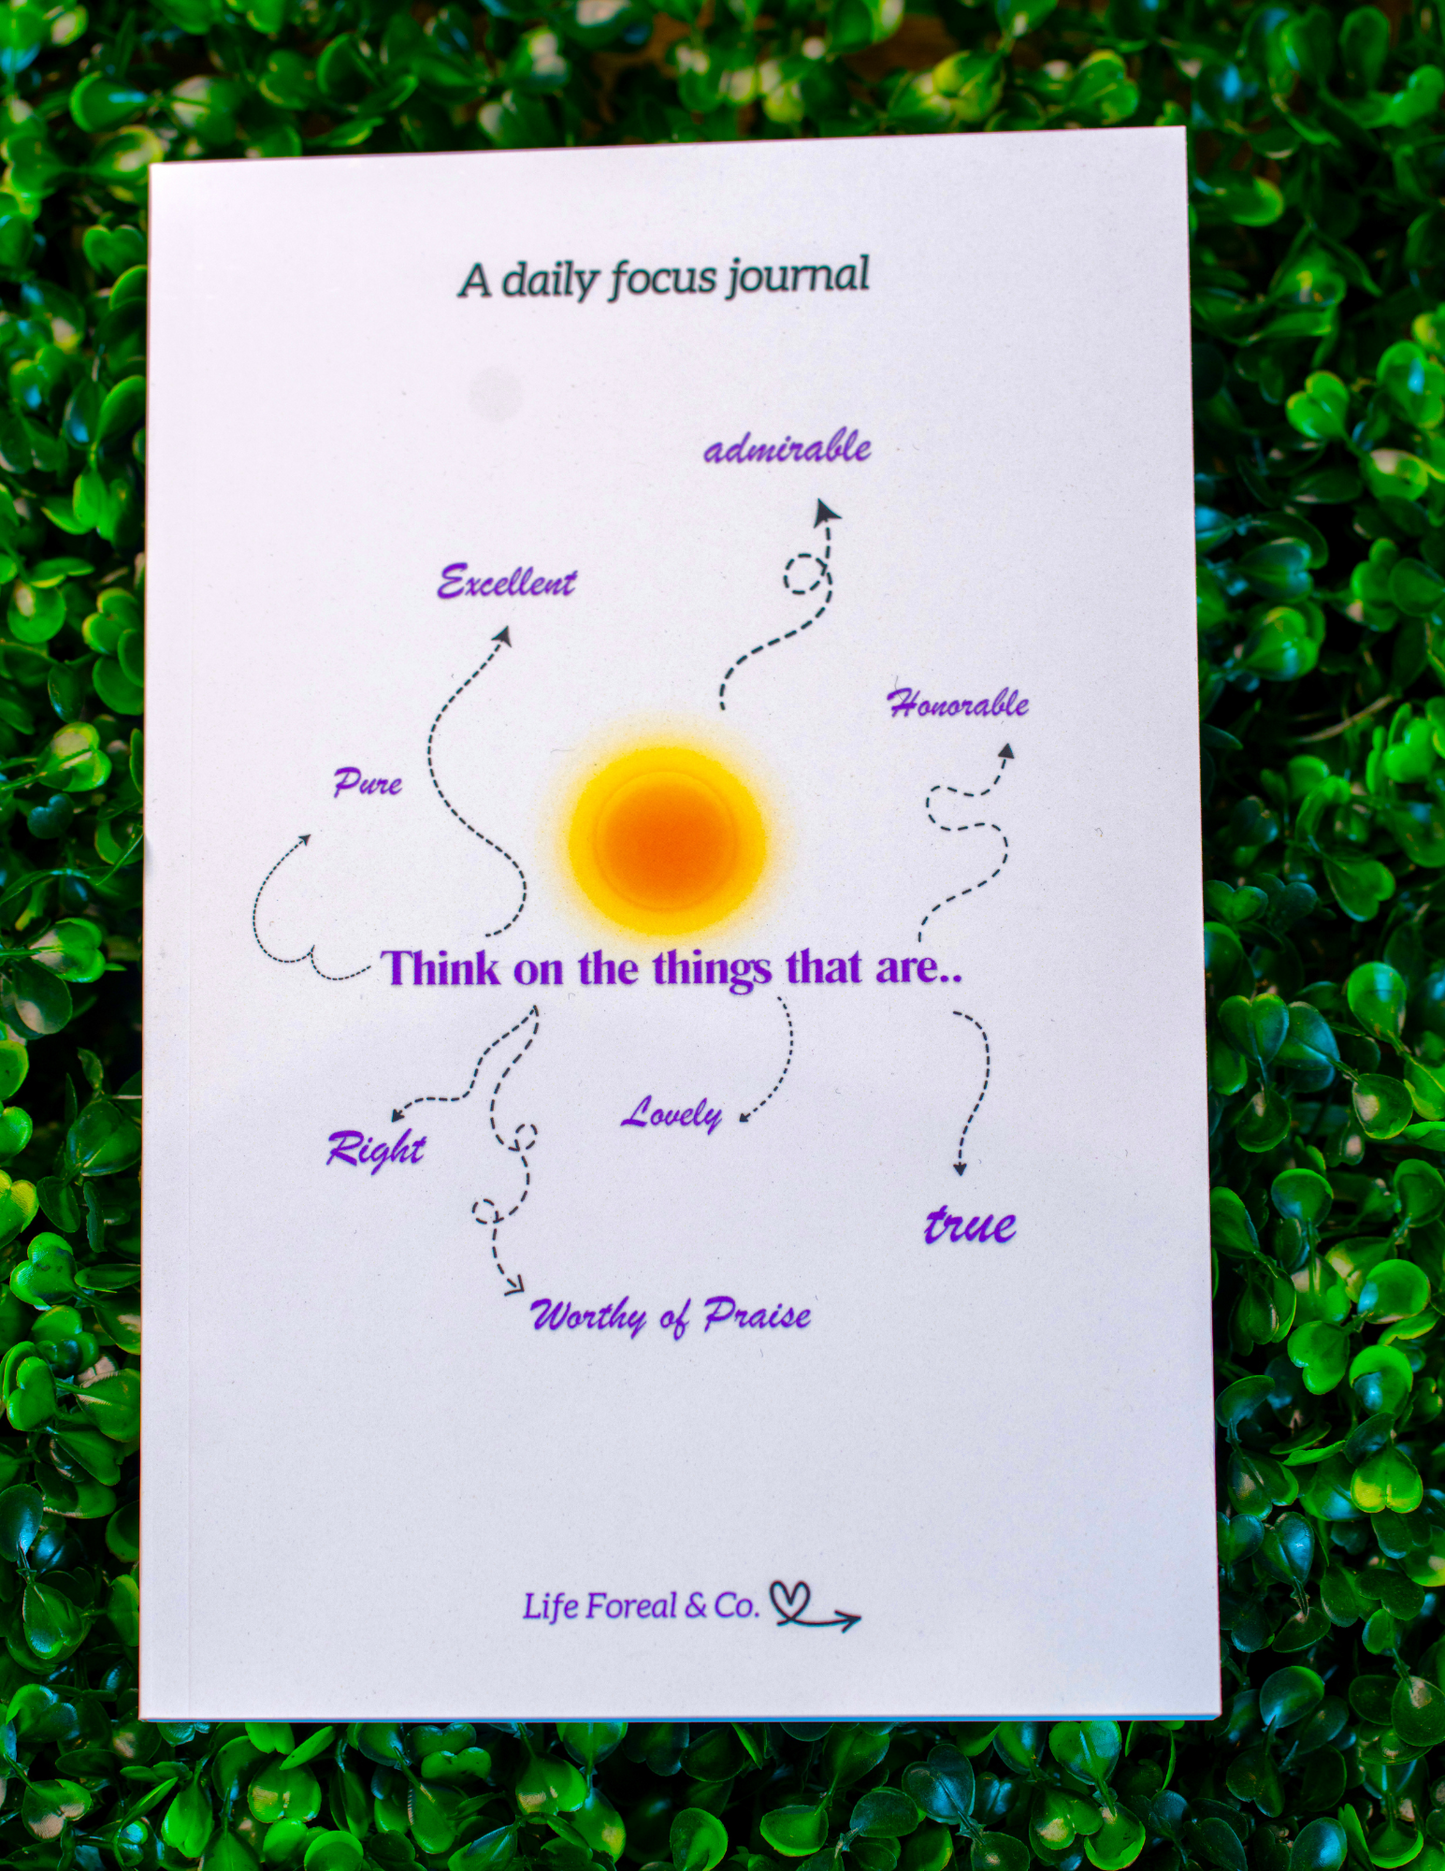 A daily focus journal
admirable
Excellent
Honorable
Pure
Think on the things that are..
Lovely
Right
true
Worthy of Praise
Life Foreal & Co.